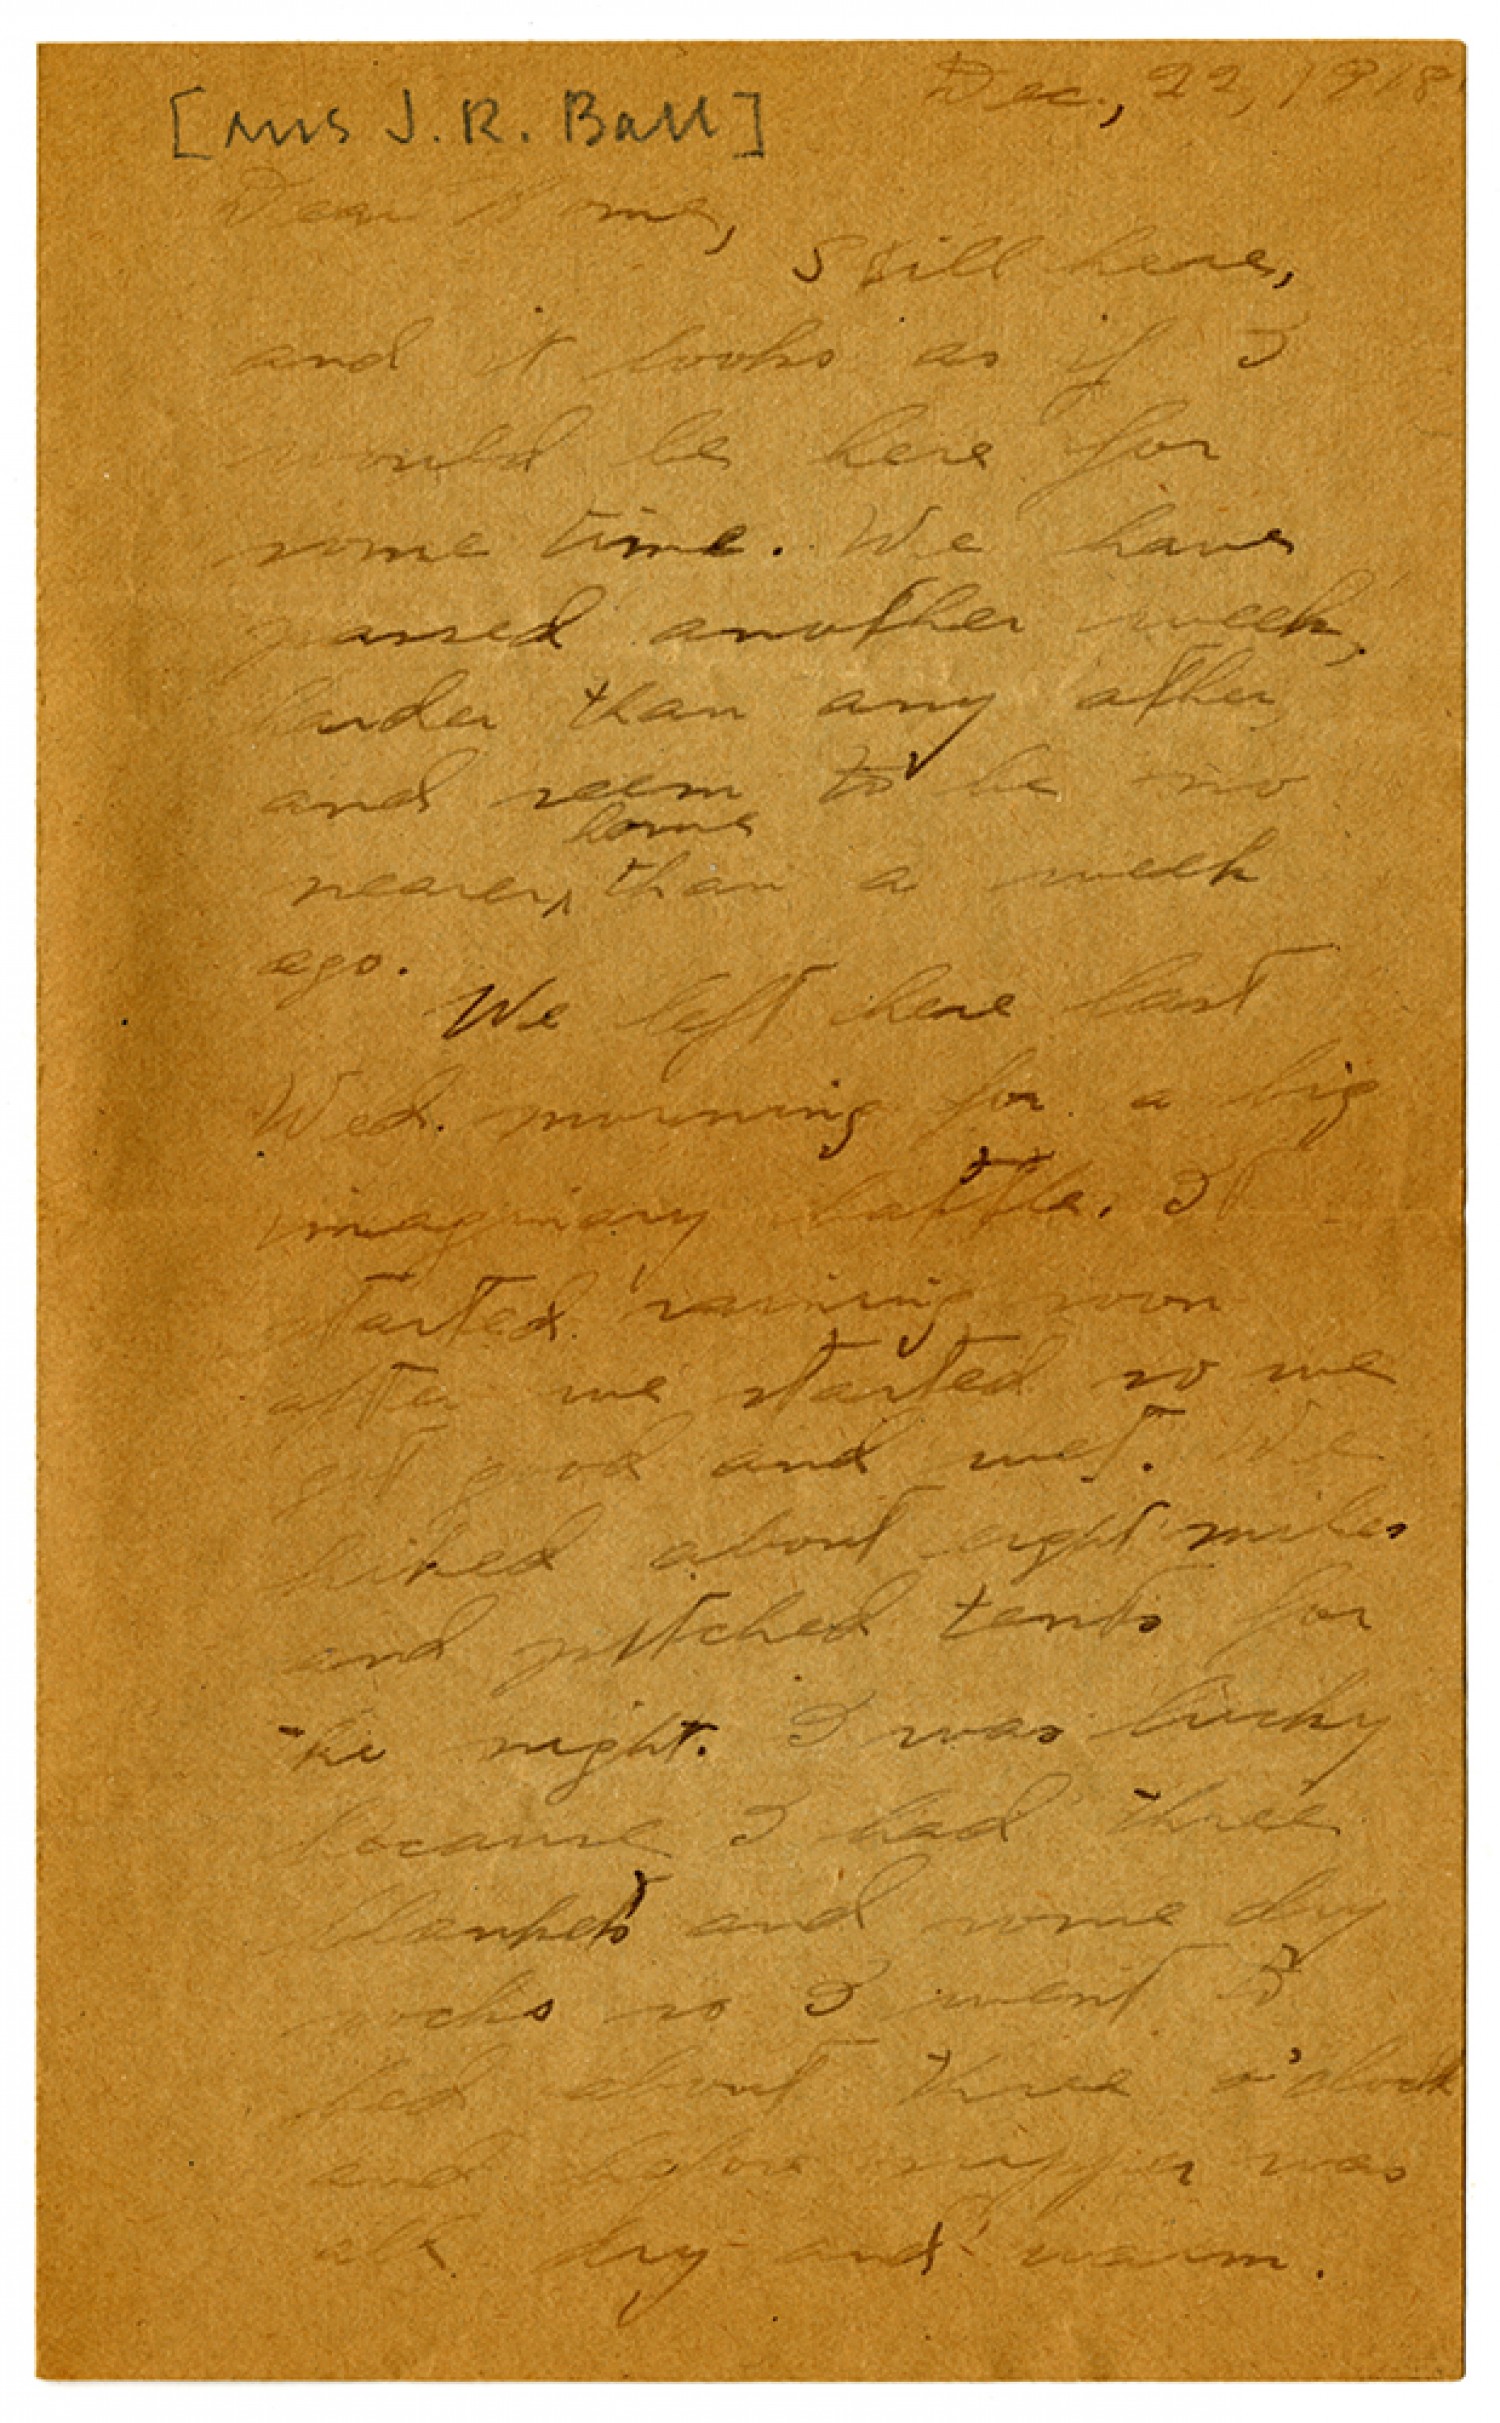 Dec., 22, 1918
[Mrs J. R. Ball]
Dear Home,
Still here,
and it looks as if I
would be here for
some time. We have
passed another week,
harder than any other
and seem to be no
home
nearer ^ than a week
ago.
We left here last
Wed. morning for a big
imaginary battle. It
started raining soon
after we started so we
got good and wet. We
hiked about eight miles
and pitched tents for
the night. I was lucky
because I had three
blankets and some dry
socks so I went to
bed about three o'clock
and before supper was
all dry and warm.